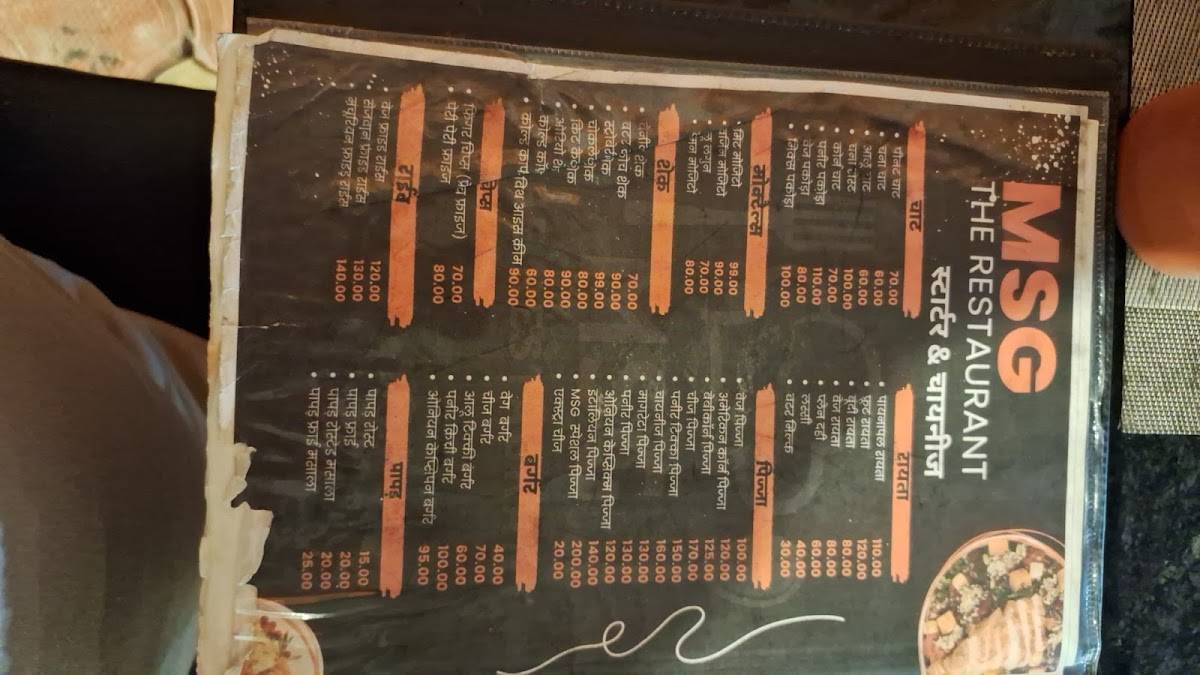 MSG
THE RESTAURANT
स्टार्टर & चायनीज
चाट
पनीर चाट 70.00
चना चाट 60.00
आलू चाट 60.00
चना रोस्ट 100.00
कॉर्न चाट 70.00
पनीर पकोड़ा 110.00
वेज पकोड़ा 80.00
मिक्स पकोड़ा 100.00
मोक्टेल्स
मिंट मोजिटो 99.00
वर्जिन मोजिटो 90.00
ब्लू लगून 70.00
80.00
शेक
70.00
90.00
99.00
चॉकलेट शेक 90.00
किट कैट शेक 90.00
ओरियो शेक 80.00
कोल्ड कॉफी 60.00
कोल्ड कॉफी विथ आइस क्रीम 90.00
फ्रेंच
फिंगर चिप्स (फ्रेंच फ्राइज) 70.00
पेरी पेरी फ्राइज 80.00
राईस
वेज फ्राइड राईस 120.00
शेजवान फ्राइड राईस 130.00
मंचूरियन फ्राइड राईस 140.00
रायता
पायनापल रायता 110.00
फ्रूट रायता 120.00
बूंदी रायता 80.00
वेज रायता 80.00
प्लेन दही 60.00
लस्सी 40.00
बटर मिल्क 30.00
पिज्जा
वेज पिज्जा 100.00
अमेरिकन कॉर्न पिज्जा 120.00
125.00
चीज पिज्जा 170.00
पनीर टिक्का पिज्जा 150.00
160.00
मार्गरेटा पिज्जा 130.00
पनीर पिज्जा 130.00
ओनियन कैप्सिकम पिज्जा 120.00
इटालियन पिज्जा 140.00
MSG स्पेशल पिज्जा 200.00
एक्स्ट्रा चीज 20.00
बर्गर
वेज बर्गर 40.00
चीज बर्गर 70.00
आलू टिक्की बर्गर 60.00
पनीर चिली बर्गर 100.00
ओनियन कैप्सिकम बर्गर 95.00
पापड़
पापड़ रोस्ट 15.00
पापड़ फ्राई 20.00
पापड़ रोस्टेड मसाला 20.00
पापड़ फ्राई मसाला 25.00